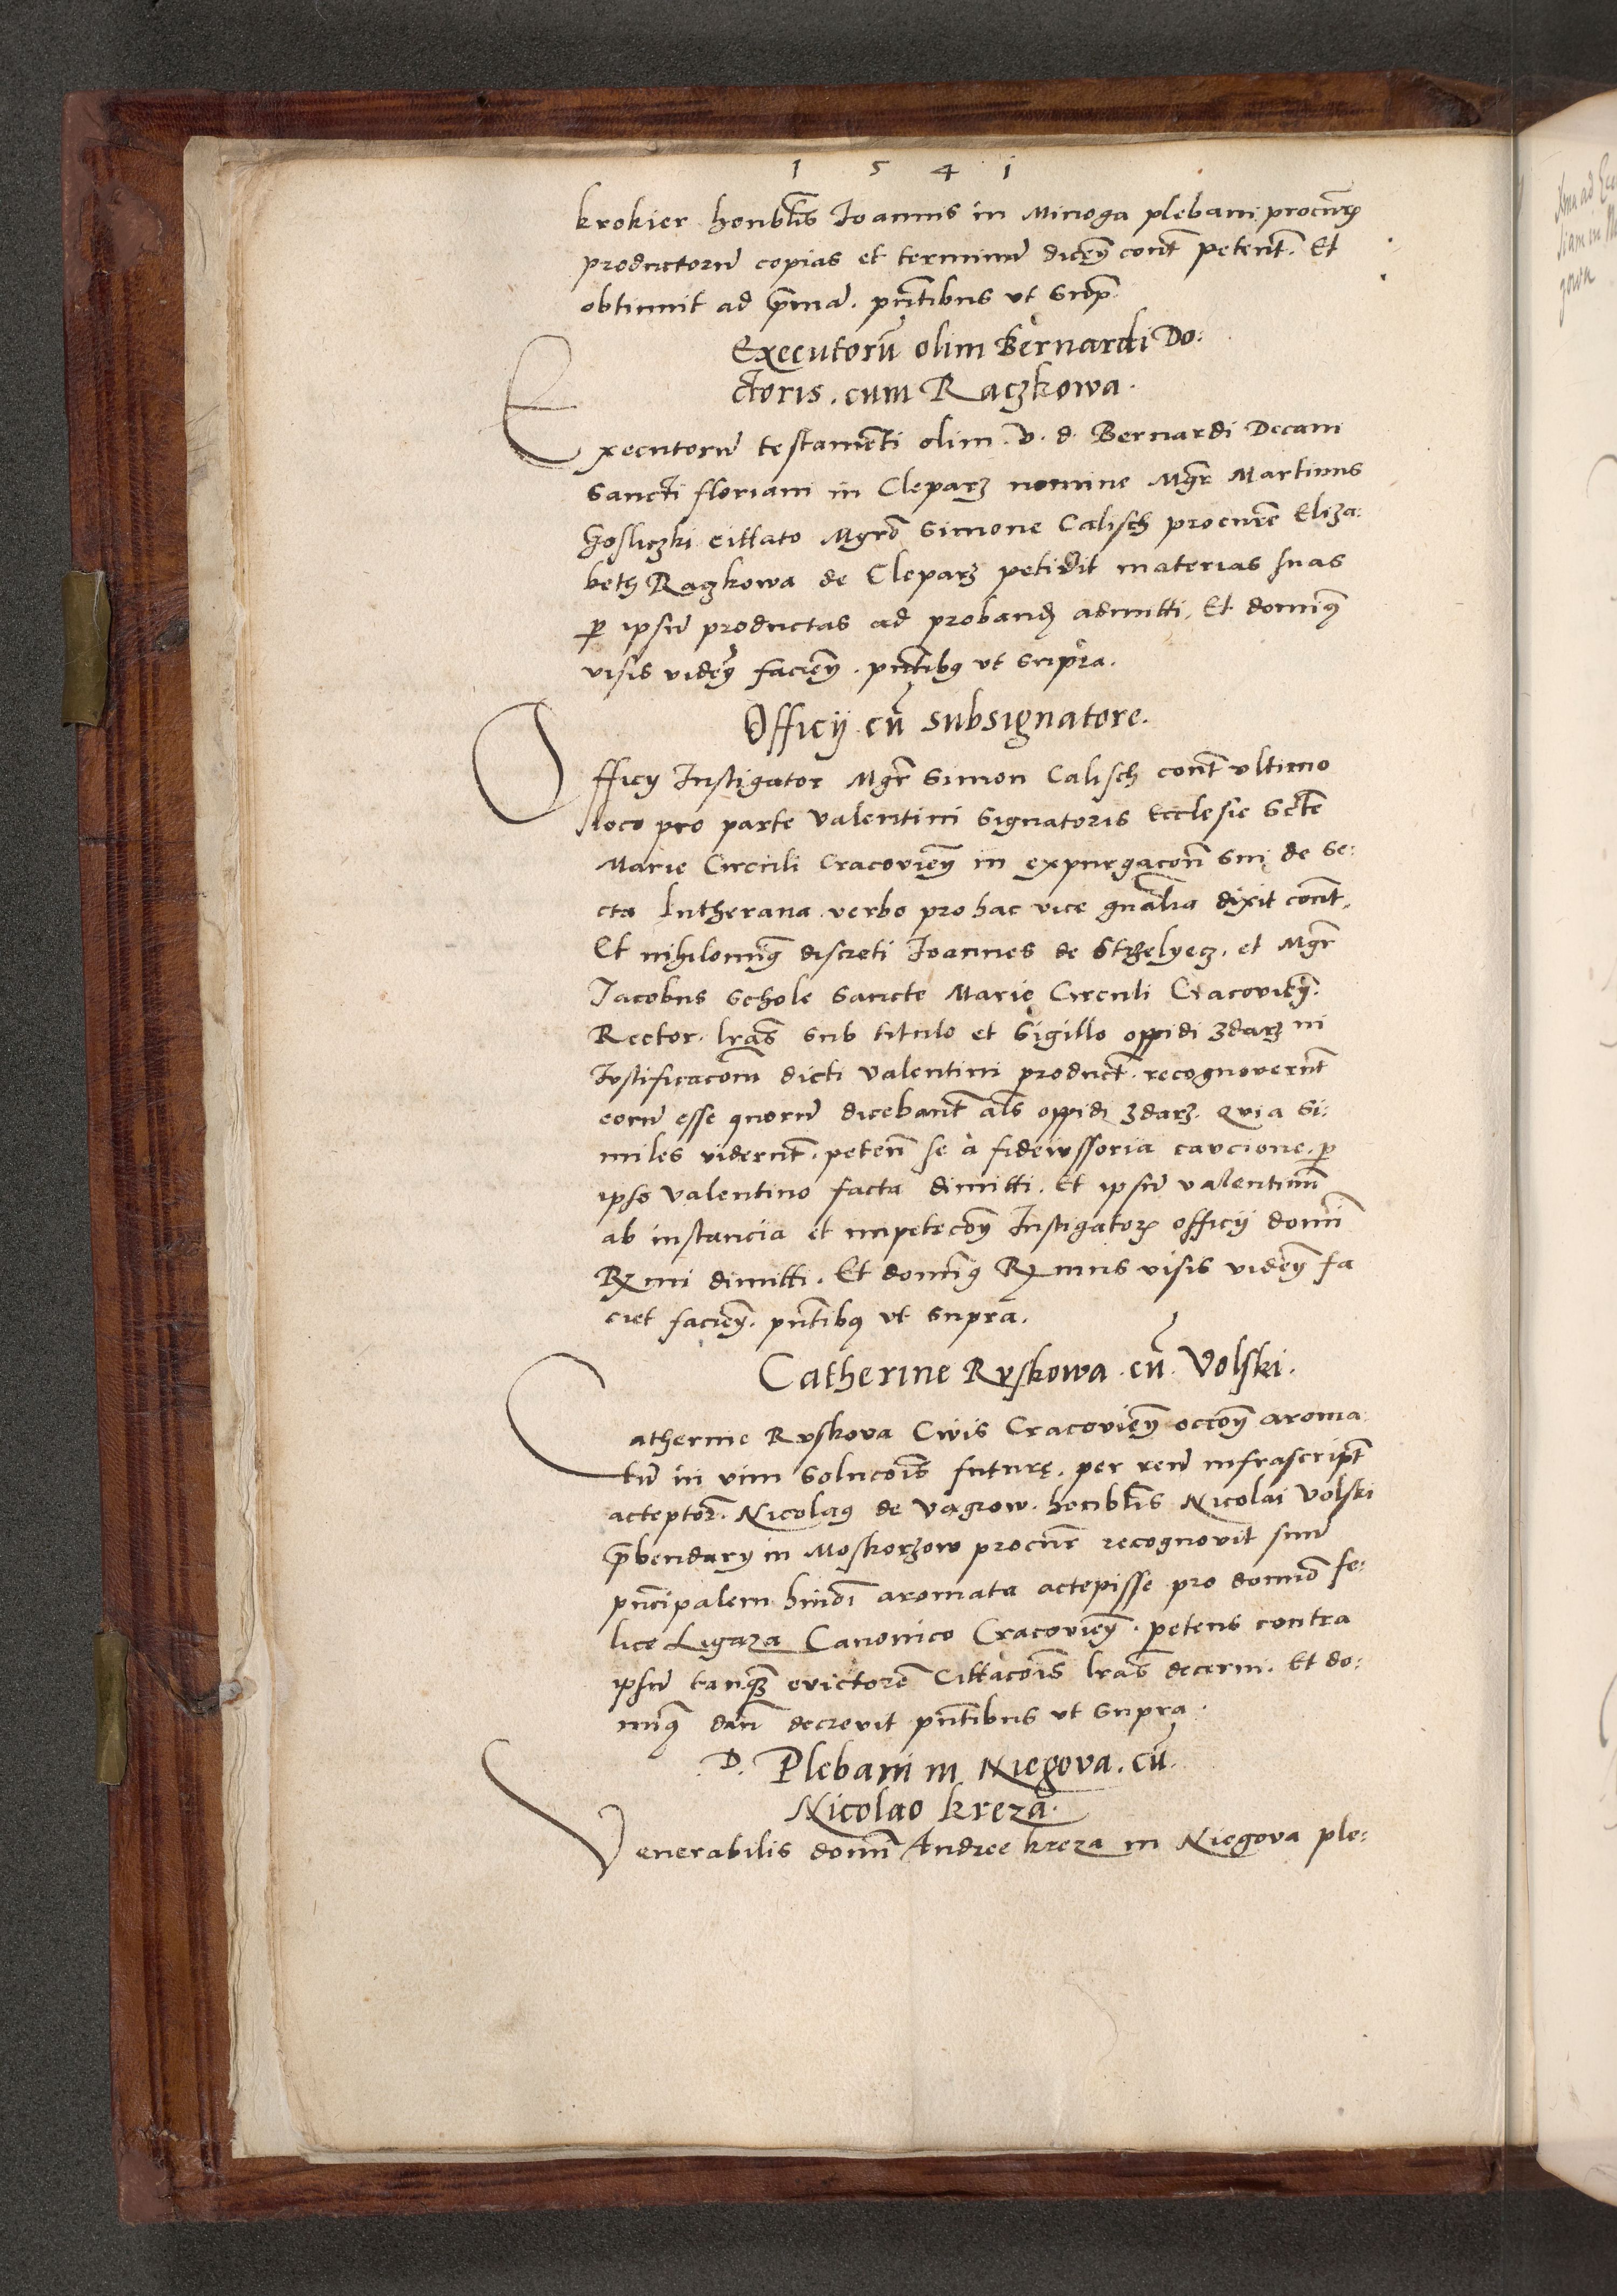 1 5 4 1
krokier honbłis Joannis in Minoga plebani procur̃
productorũ copias et terminũ diceñ cont̃ petent̃. Et
obtinuit ad p̃mã. pñtibus vt sup̃
Executorũ olim Bernardi Do:
ctoris. cum Raczkowa.
Executorũ testamẽti olim v. d. Bernardi Decani
Sancti floriani in Cleparz nomine Mgr̃ Martinus
cittato Mgrõ Simone Calisch procurẽ Eliza:
beth Raczkowa de Cleparz petivit materias suas
p ipsũ productas ad proband admitti. Et dominꝰ
visis videñ facieñ. pñtibꝰ vt supra.
Officij cũ subsignatore.
Officij Instigator Mgr̃ Simon Calisch cont̃ vltimo
loco pro parte Valentini Signatoris Ecclesie Sctẽ
Marie Circuli Cracovieñ in expurgacoñe sui de Se:
cta lutherana verbo pro hac vice gnãlia dixit cont̃.
Et nihilominꝰ discreti Joannes de Strzelyecz. et Mgr̃
Jacobus Schole Sancte Marie Circuli Cracovieñ.
Rector. lrãs sub titulo et Sigillo oppidi Zdarz in
Justificacõm dicti Valentini product̃. recognoverũt
eorũ esse quorũ dicebant̃ al̃s oppidi Zdarz. Quia Si:
miles viderũt. peteñ se à fideiussoria caucione. p
ipso Valentino facta dimitti. Et ipsũ Valentinũ
ab instancia et impeticoñ Instigatoris officij domi
Rx̃mi dimitti. Et dominꝰ Rx̃mus visis videñ fa
ciet facieñ. pñtibꝰ vt supra.
Catherine Ryskowa. cũ. Volski.
Catherine Ryskova Civis Cracovieñ occoñ aroma:
tũ in vim solucois future. per reũ infrascript̃
acceptor̃. Nicolaꝰ de Vagrow. honbłis Nicolai Volski
p̃bendarij in Moskorzow procur̃ recognovit suũ
pñcipalem hmõi aromata accepisse pro domiõ fe:
lice Ligaza Canonico Cracovieñ. petens contra
ipsũ tanq̃ evictorẽ Cittacois lrãs decerni. Et do:
minꝰ dañ decrevit pñtibus vt supra.
D. Plebani in Niegova. cũ.
Nicolao kreza.
Venerabilis domi Andree kreza in Niegova ple: